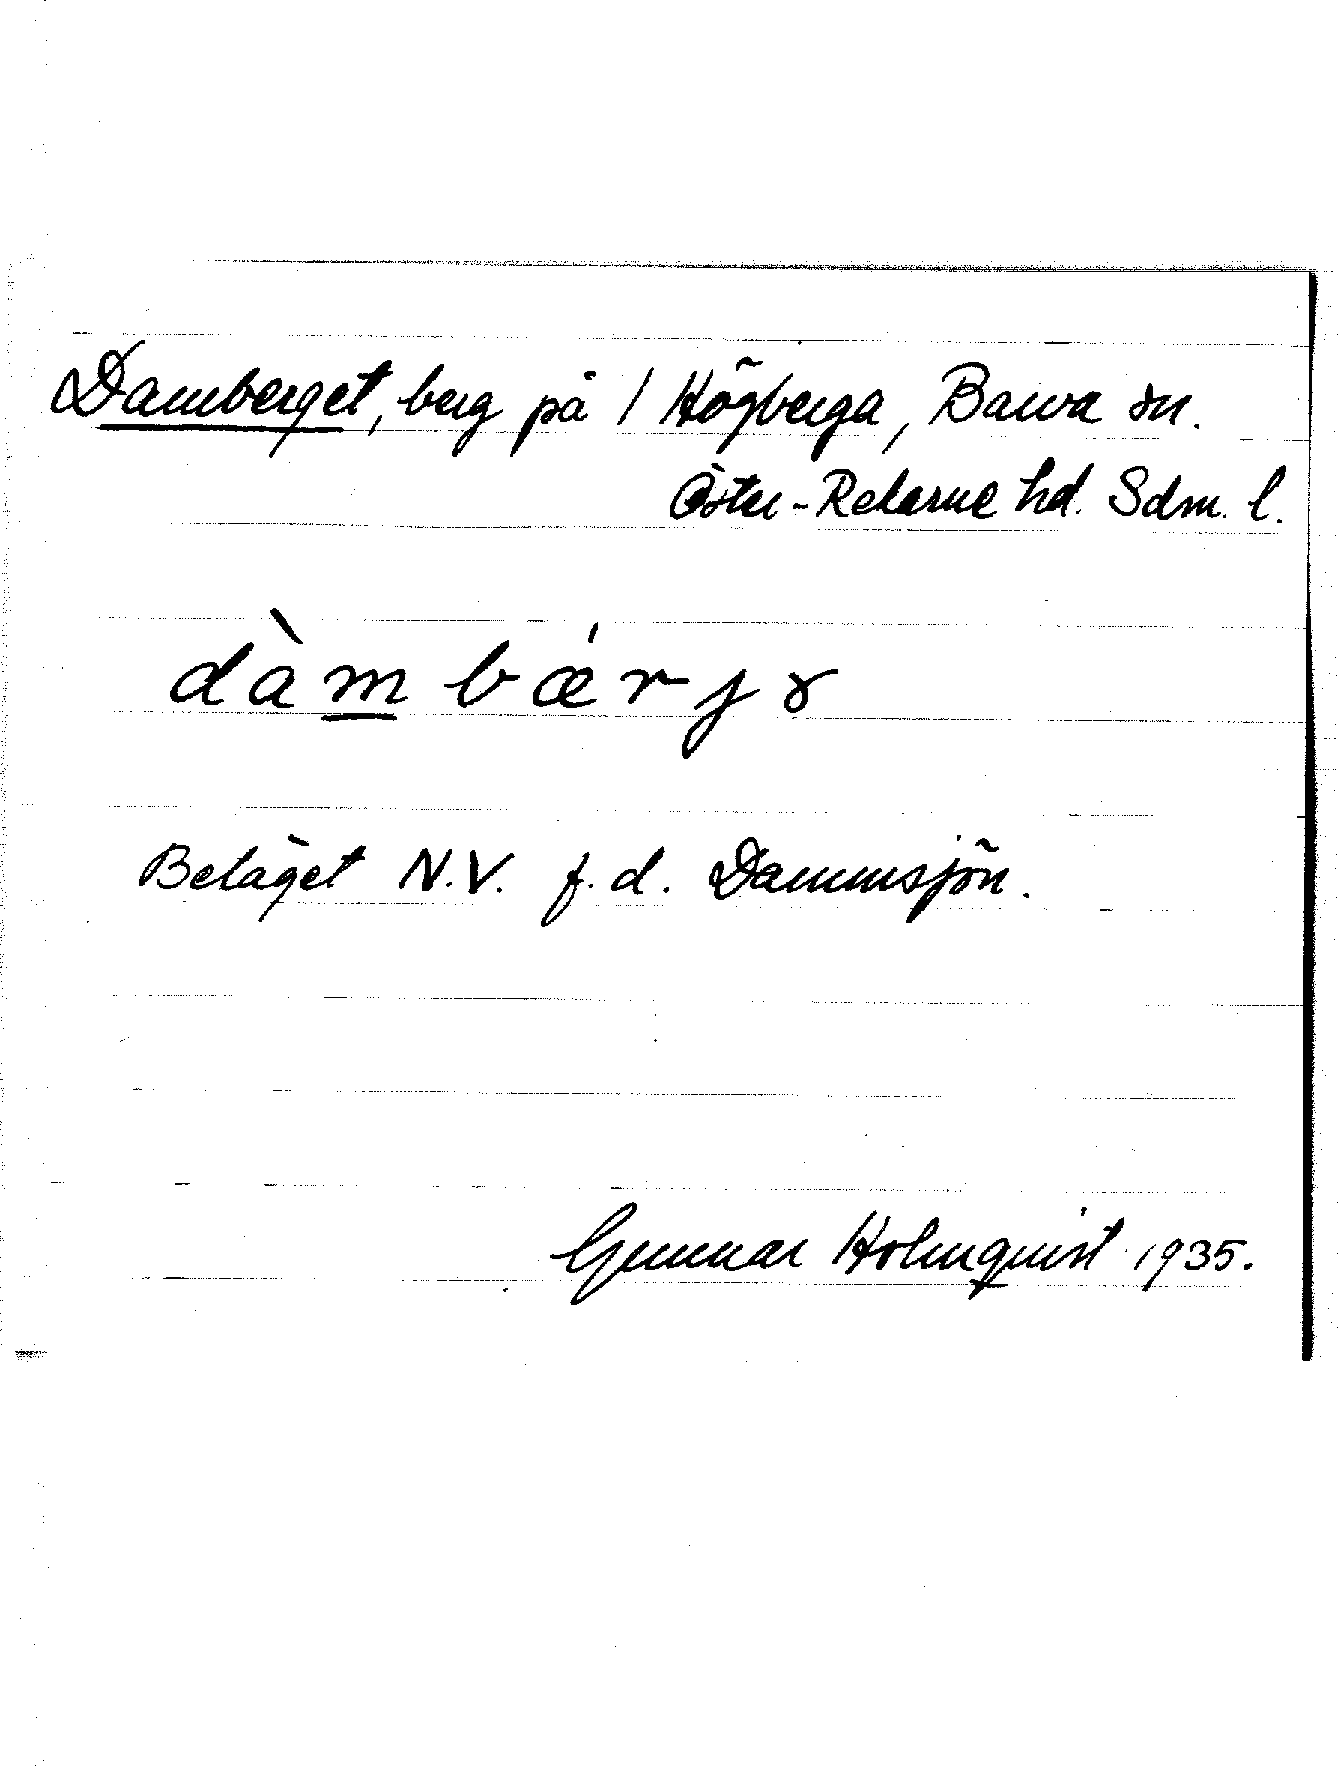 Damberget, berg på 1 Högberga, Barva sn.
Öster-Rekarne hd. Sdm. l.
dàm bǽrjɤ
Beläget N.V. f.d. Dammsjön.
Gunnar Holmquist 1935.